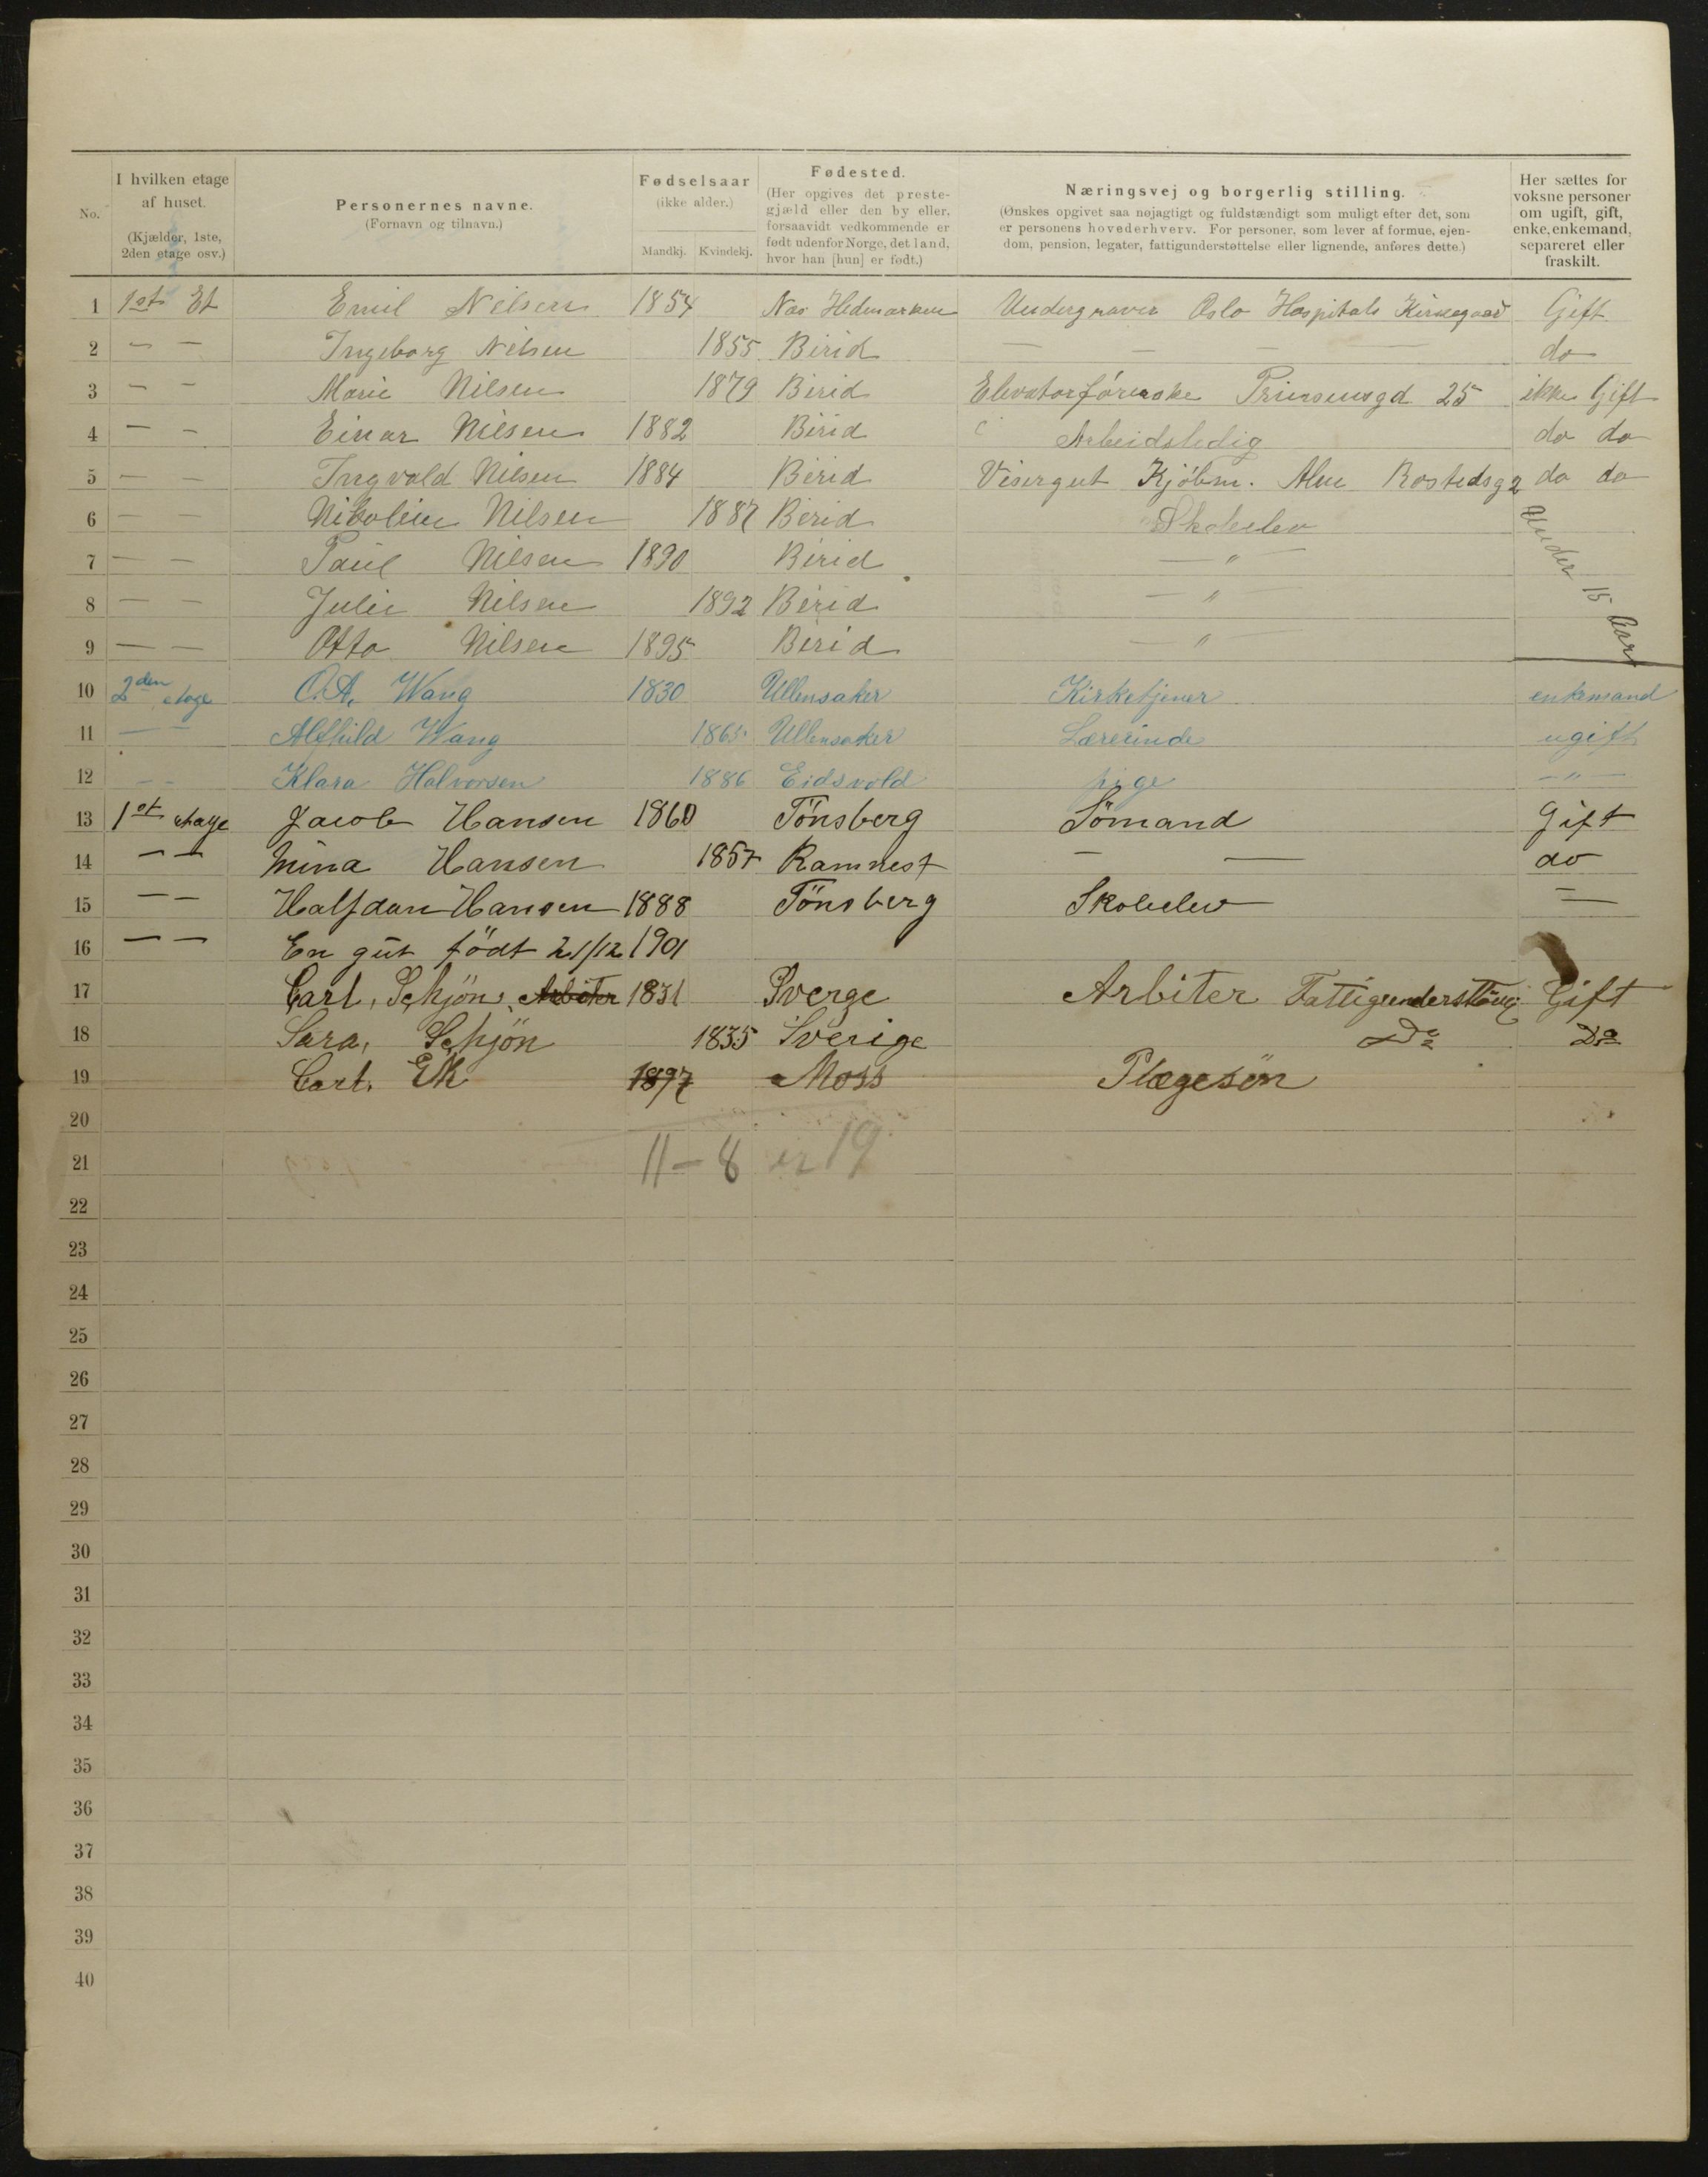 No.
I hvilken etage af huset. (Kjælder, 1ste, 2den etage osv.)
Personernes navne. (Fornavn og tilnavn.)
Fødselsaar (ikke alder.) Mandkj. Kvindekj.
Fødested. (Her opgives det prestegjæld eller den by eller, forsaavidt vedkommende er født udenfor Norge, det land, hvor han [hun] er født.)
Næringsvej og borgerlig stilling. (Ønskes opgivet saa nøjagtigt og fuldstændigt som muligt efter det, som er personens hovederhverv. For personer, som lever af formue, ejendom, pension, legater, fattigunderstøttelse eller lignende, anføres dette.)
Her sættes for voksne personer om ugift, gift, enke, enkemand, separeret eller fraskilt.
1 1ste Et Emil Nilsen 1854 Nas Hedemarken Undergraver Oslo Hospitals Kirkegaard Gift
2 — — Ingeborg Nilsen 1855 Birid — — — — do
3 — — Marie Nilsen 1879 Birid Elevatorförerske Prinsensgd 25 ikke Gift
4 — — Einar Nilsen 1882 Birid Arbeidsledig do do
5 — — Ingvald Nilsen 1884 Birid Visergut Kjöbm. Alm Rostedsg 2 do do
6 — — Nikoline Nilsen 1887 Birid Skolelev Under 15 Aar
7 — — Paul Nilsen 1890 Birid — " —
8 — — Julie Nilsen 1892 Birid — " —
9 — — Otto Nilsen 1895 Birid — " —
10 2den etage O.A. Wang 1830 Ullensaker Kirketjener enkemand
11 — — Alfhild Wang 1865 Ullensaker Lærerinde ugift
12 — — Klara Halvorsen 1886 Eidsvold pige — " —
13 1ste etage Jacob Hansen 1860 Tönsberg Sömand Gift
14 — — Mina Hansen 1857 Ramnest — — do
15 — — Halfdan Hansen 1888 Tönsberg Skolelev —
16 — — En gut födt 21/12 1901
17 Carl, Schjön, Arbiter 1831 Sverge Arbiter Gift
18 Sara, Schjön 1835 Sverige Do Do
19 Carl. Ek 1897 Moss Plegesön
20
21 11 – 8 er 19
22
23
24
25
26
27
28
29
30
31
32
33
34
35
36
37
38
39
40